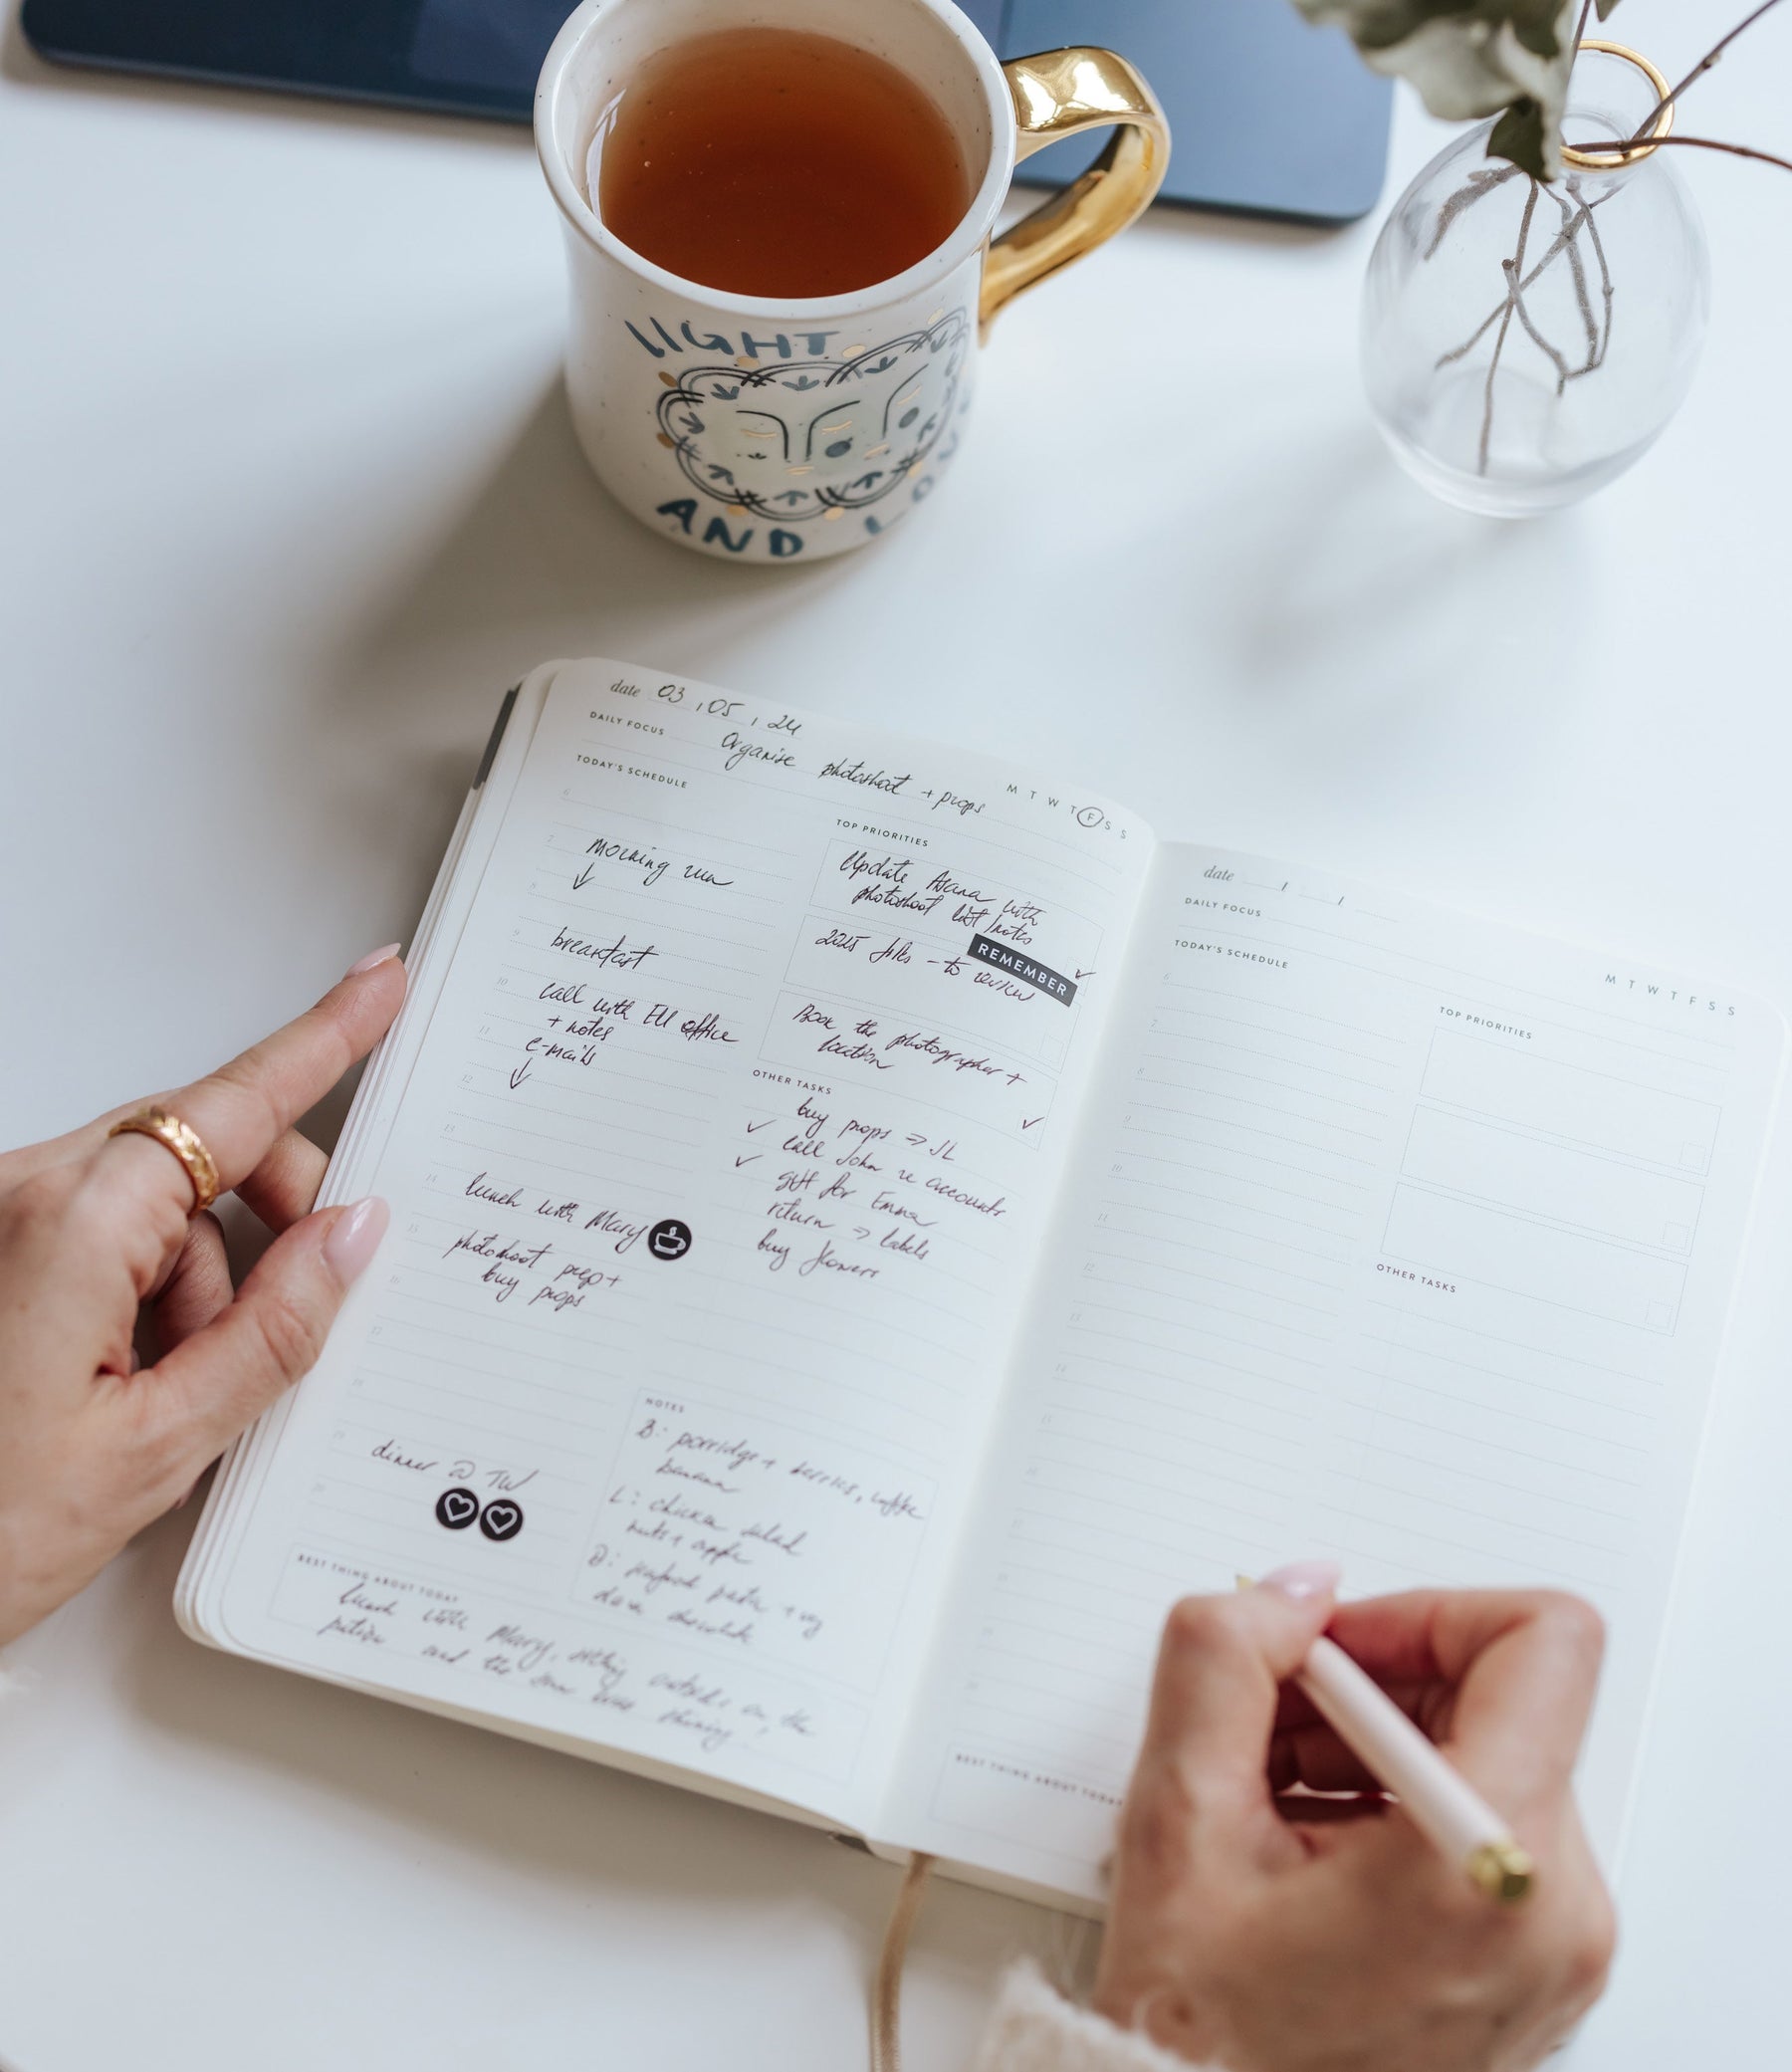 LIGHT
AND LO
date 03, 05, 24
DAILY FOCUS Organise photoshoot + props
M T W T F S S
TODAY'S SCHEDULE
6
7 morning run
8
9 breakfast
10 call with EU office
11 + notes
e-mails
12
13
14 lunch with Mary
15 photoshoot prep +
16 buy props
17
18
19 dinner @ TW
20
TOP PRIORITIES
Update Asana with
photoshoot list/notes
REMEMBER
2025 files - to review
Book the photographer +
location
OTHER TASKS
buy props => JL
call John re accounts
gift for Emma
return => labels
buy flowers
NOTES
B: porridge + berries, coffee
banana
L: chicken salad
nuts + apple
D: seafood pasta + veg
dark chocolate
BEST THING ABOUT TODAY
lunch with Mary, sitting outside on the
patio and the sun was shining
date / /
DAILY FOCUS
M T W T F S S
TODAY'S SCHEDULE
6
7
8
9
10
11
12
13
14
15
TOP PRIORITIES
OTHER TASKS
BEST THING ABOUT TODAY